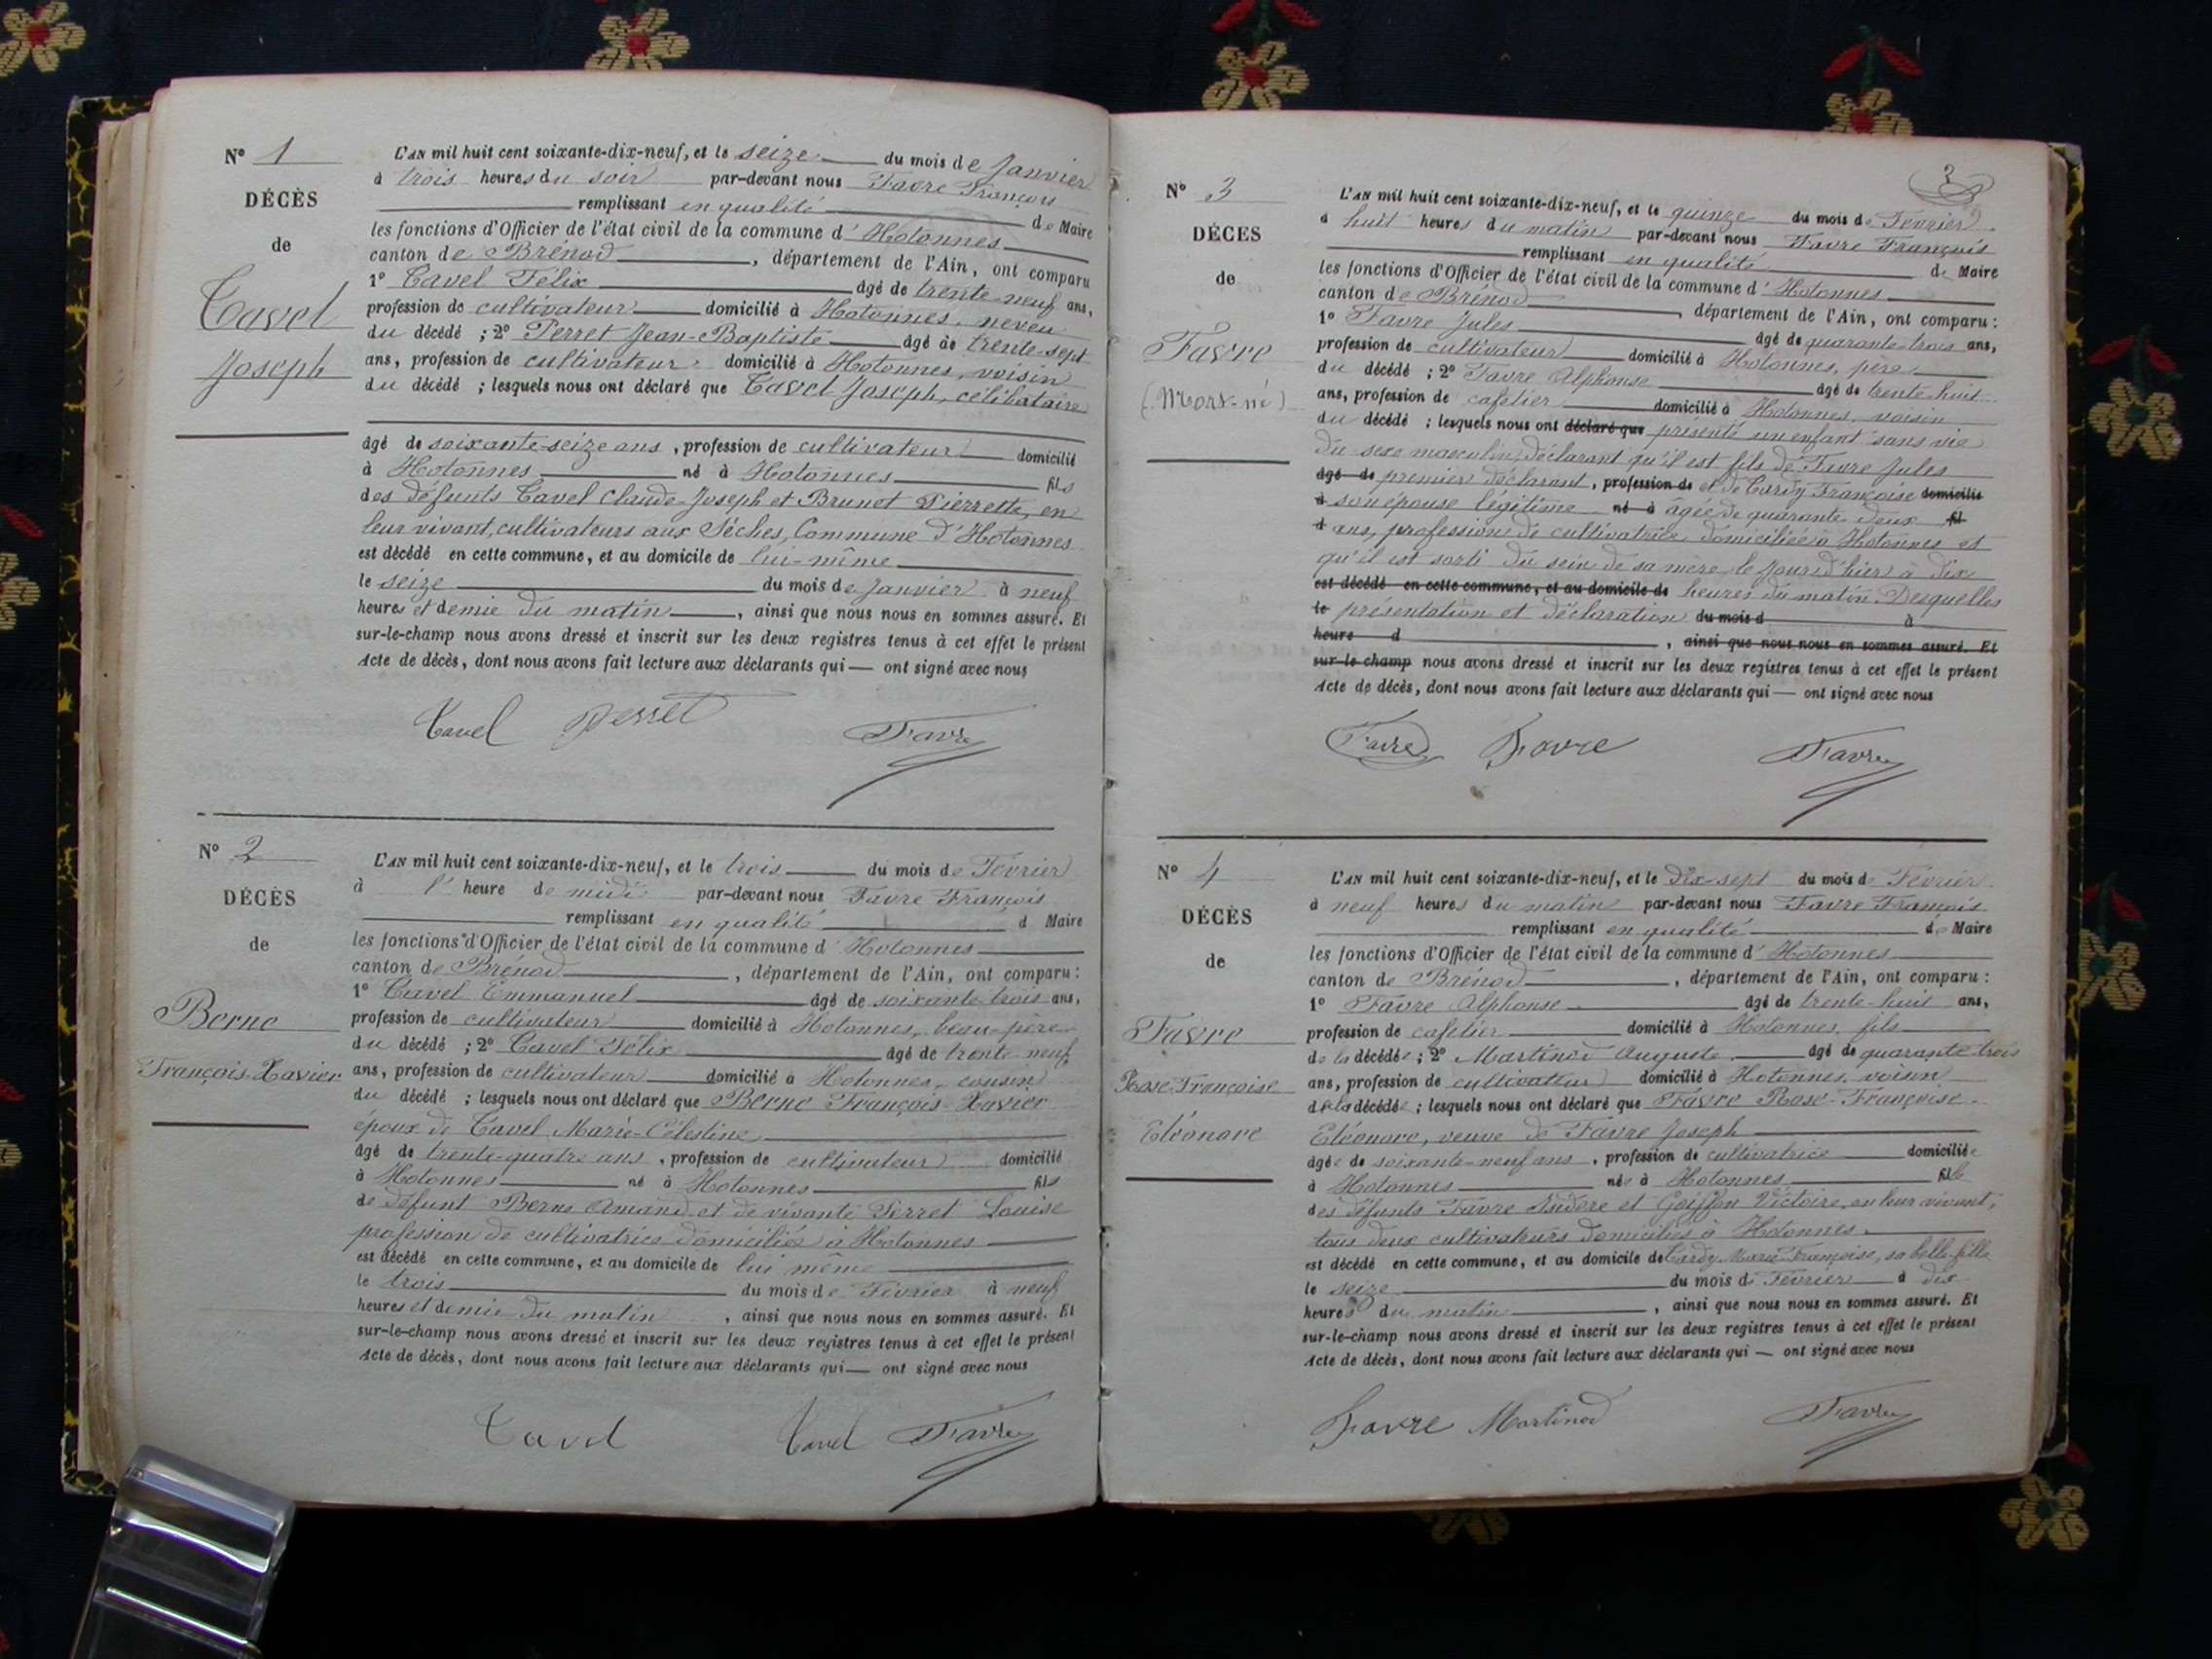 N° 1
DÉCÈS
de
Cavel
Joseph
L'AN mil huit cent soixante-dix-neuf, et le seize du mois de Janvier
à trois heures du soir par-devant nous Favre François
remplissant en qualité de Maire
les fonctions d'Officier de l'état civil de la commune d'Hotonnes
canton de Brénod, département de l'Ain, ont comparu
1° Cavel Félix âgé de trente-neuf ans,
profession de cultivateur domicilié à Hotonnes, neveu
du décédé ; 2° Perret Jean-Baptiste âgé de trente-sept
ans, profession de cultivateur domicilié à Hotonnes, voisin
du décédé ; lesquels nous ont déclaré que Cavel Joseph, célibataire
âgé de soixante-seize ans, profession de cultivateur domicilié
à Hotonnes né à Hotonnes fils
des défunts Cavel Claude-Joseph et Brunet Pierrette, en
leur vivant, cultivateurs aux Séches, Commune d'Hotonnes
est décédé en cette commune, et au domicile de lui-même
le seize du mois de Janvier à neuf
heures et demie du matin, ainsi que nous nous en sommes assuré. Et
sur-le-champ nous avons dressé et inscrit sur les deux registres tenus à cet effet le présent
Acte de décès, dont nous avons fait lecture aux déclarants qui — ont signé avec nous
Cavel Perret Favre
N° 2
DÉCÈS
de
Berne
François-Xavier
L'AN mil huit cent soixante-dix-neuf, et le trois du mois de Février
à l' heure de midi par-devant nous Favre François
remplissant en qualité d Maire
les fonctions d'Officier de l'état civil de la commune d'Hotonnes
canton de Brénod, département de l'Ain, ont comparu :
1° Cavel Emmanuel âgé de soixante-trois ans,
profession de cultivateur domicilié à Hotonnes, beau-père
du décédé ; 2° Cavel Félix âgé de trente-neuf
ans, profession de cultivateur domicilié à Hotonnes, cousin
du décédé ; lesquels nous ont déclaré que Berne François-Xavier
époux de Cavel Marie-Célestine
âgé de trente-quatre ans, profession de cultivateur domicilié
à Hotonnes né à Hotonnes fils
de défunt Berne Amand et de vivante Perret Louise
profession de cultivatrice domiciliée à Hotonnes
est décédé en cette commune, et au domicile de lui même
le trois du mois de Février à neuf
heures et demie du matin, ainsi que nous nous en sommes assuré. Et
sur-le-champ nous avons dressé et inscrit sur les deux registres tenus à cet effet le présent
Acte de décès, dont nous avons fait lecture aux déclarants qui — ont signé avec nous
Cavel Cavel Favre
3
N° 3
DÉCÈS
de
Favre
(Mort-né)
L'AN mil huit cent soixante-dix-neuf, et le quinze du mois de Février
à huit heures du matin par-devant nous Favre François
remplissant en qualité de Maire
les fonctions d'Officier de l'état civil de la commune d'Hotonnes
canton de Brénod, département de l'Ain, ont comparu :
1° Favre Jules âgé de quarante-trois ans,
profession de cultivateur domicilié à Hotonnes, père
du décédé ; 2° Favre Alphonse âgé de trente-huit
ans, profession de cafetier domicilié à Hotonnes, voisin
du décédé ; lesquels nous ont déclaré que présenté un enfant sans vie
du sexe masculin, déclarant qu'il est fils de Favre Jules
âgé de premier déclarant, profession de et de Cardy Françoise domicilié
à son épouse légitime né à âgée de quarante deux fil
d ans, profession de cultivatrice domiciliée à Hotonnes et
qu'il est sorti du sein de sa mère le jour d'hier à dix
est décédé en cette commune, et au domicile de heures du matin. Desquelles
le présentation et déclaration du mois d à
heure d , ainsi que nous nous en sommes assuré. Et
sur-le champ nous avons dressé et inscrit sur les deux registres tenus à cet effet le présent
Acte de décès, dont nous avons fait lecture aux déclarants qui — ont signé avec nous
Favre Favre Favre
N° 4
DÉCÈS
de
Favre
Rose-Françoise
Eléonore
L'AN mil huit cent soixante-dix-neuf, et le dix-sept du mois de Février
à neuf heures du matin par-devant nous Favre François
remplissant en qualité de Maire
les fonctions d'Officier de l'état civil de la commune d'Hotonnes
canton de Brénod, département de l'Ain, ont comparu :
1° Favre Alphonse âgé de trente-huit ans,
profession de cafetier domicilié à Hotonnes, fils
de la décédée ; 2° Martinod Auguste âgé de quarante-trois
ans, profession de cultivateur domicilié à Hotonnes, voisin
de la décédée ; lesquels nous ont déclaré que Favre Rose-Françoise
Eléonore, veuve de Favre Joseph
âgée de soixante-neuf ans, profession de cultivatrice domiciliée
à Hotonnes née à Hotonnes fille
des défunts Favre Isidore et Goiffon Victoire, en leur vivant,
tous deux cultivateurs domiciliés à Hotonnes.
est décédé en cette commune, et au domicile de Cardy Marie-Françoise, sa belle-fille
le seize du mois de Février à dix
heures du matin, ainsi que nous nous en sommes assuré. Et
sur-le-champ nous avons dressé et inscrit sur les deux registres tenus à cet effet le présent
Acte de décès, dont nous avons fait lecture aux déclarants qui — ont signé avec nous
Favre Martinod Favre